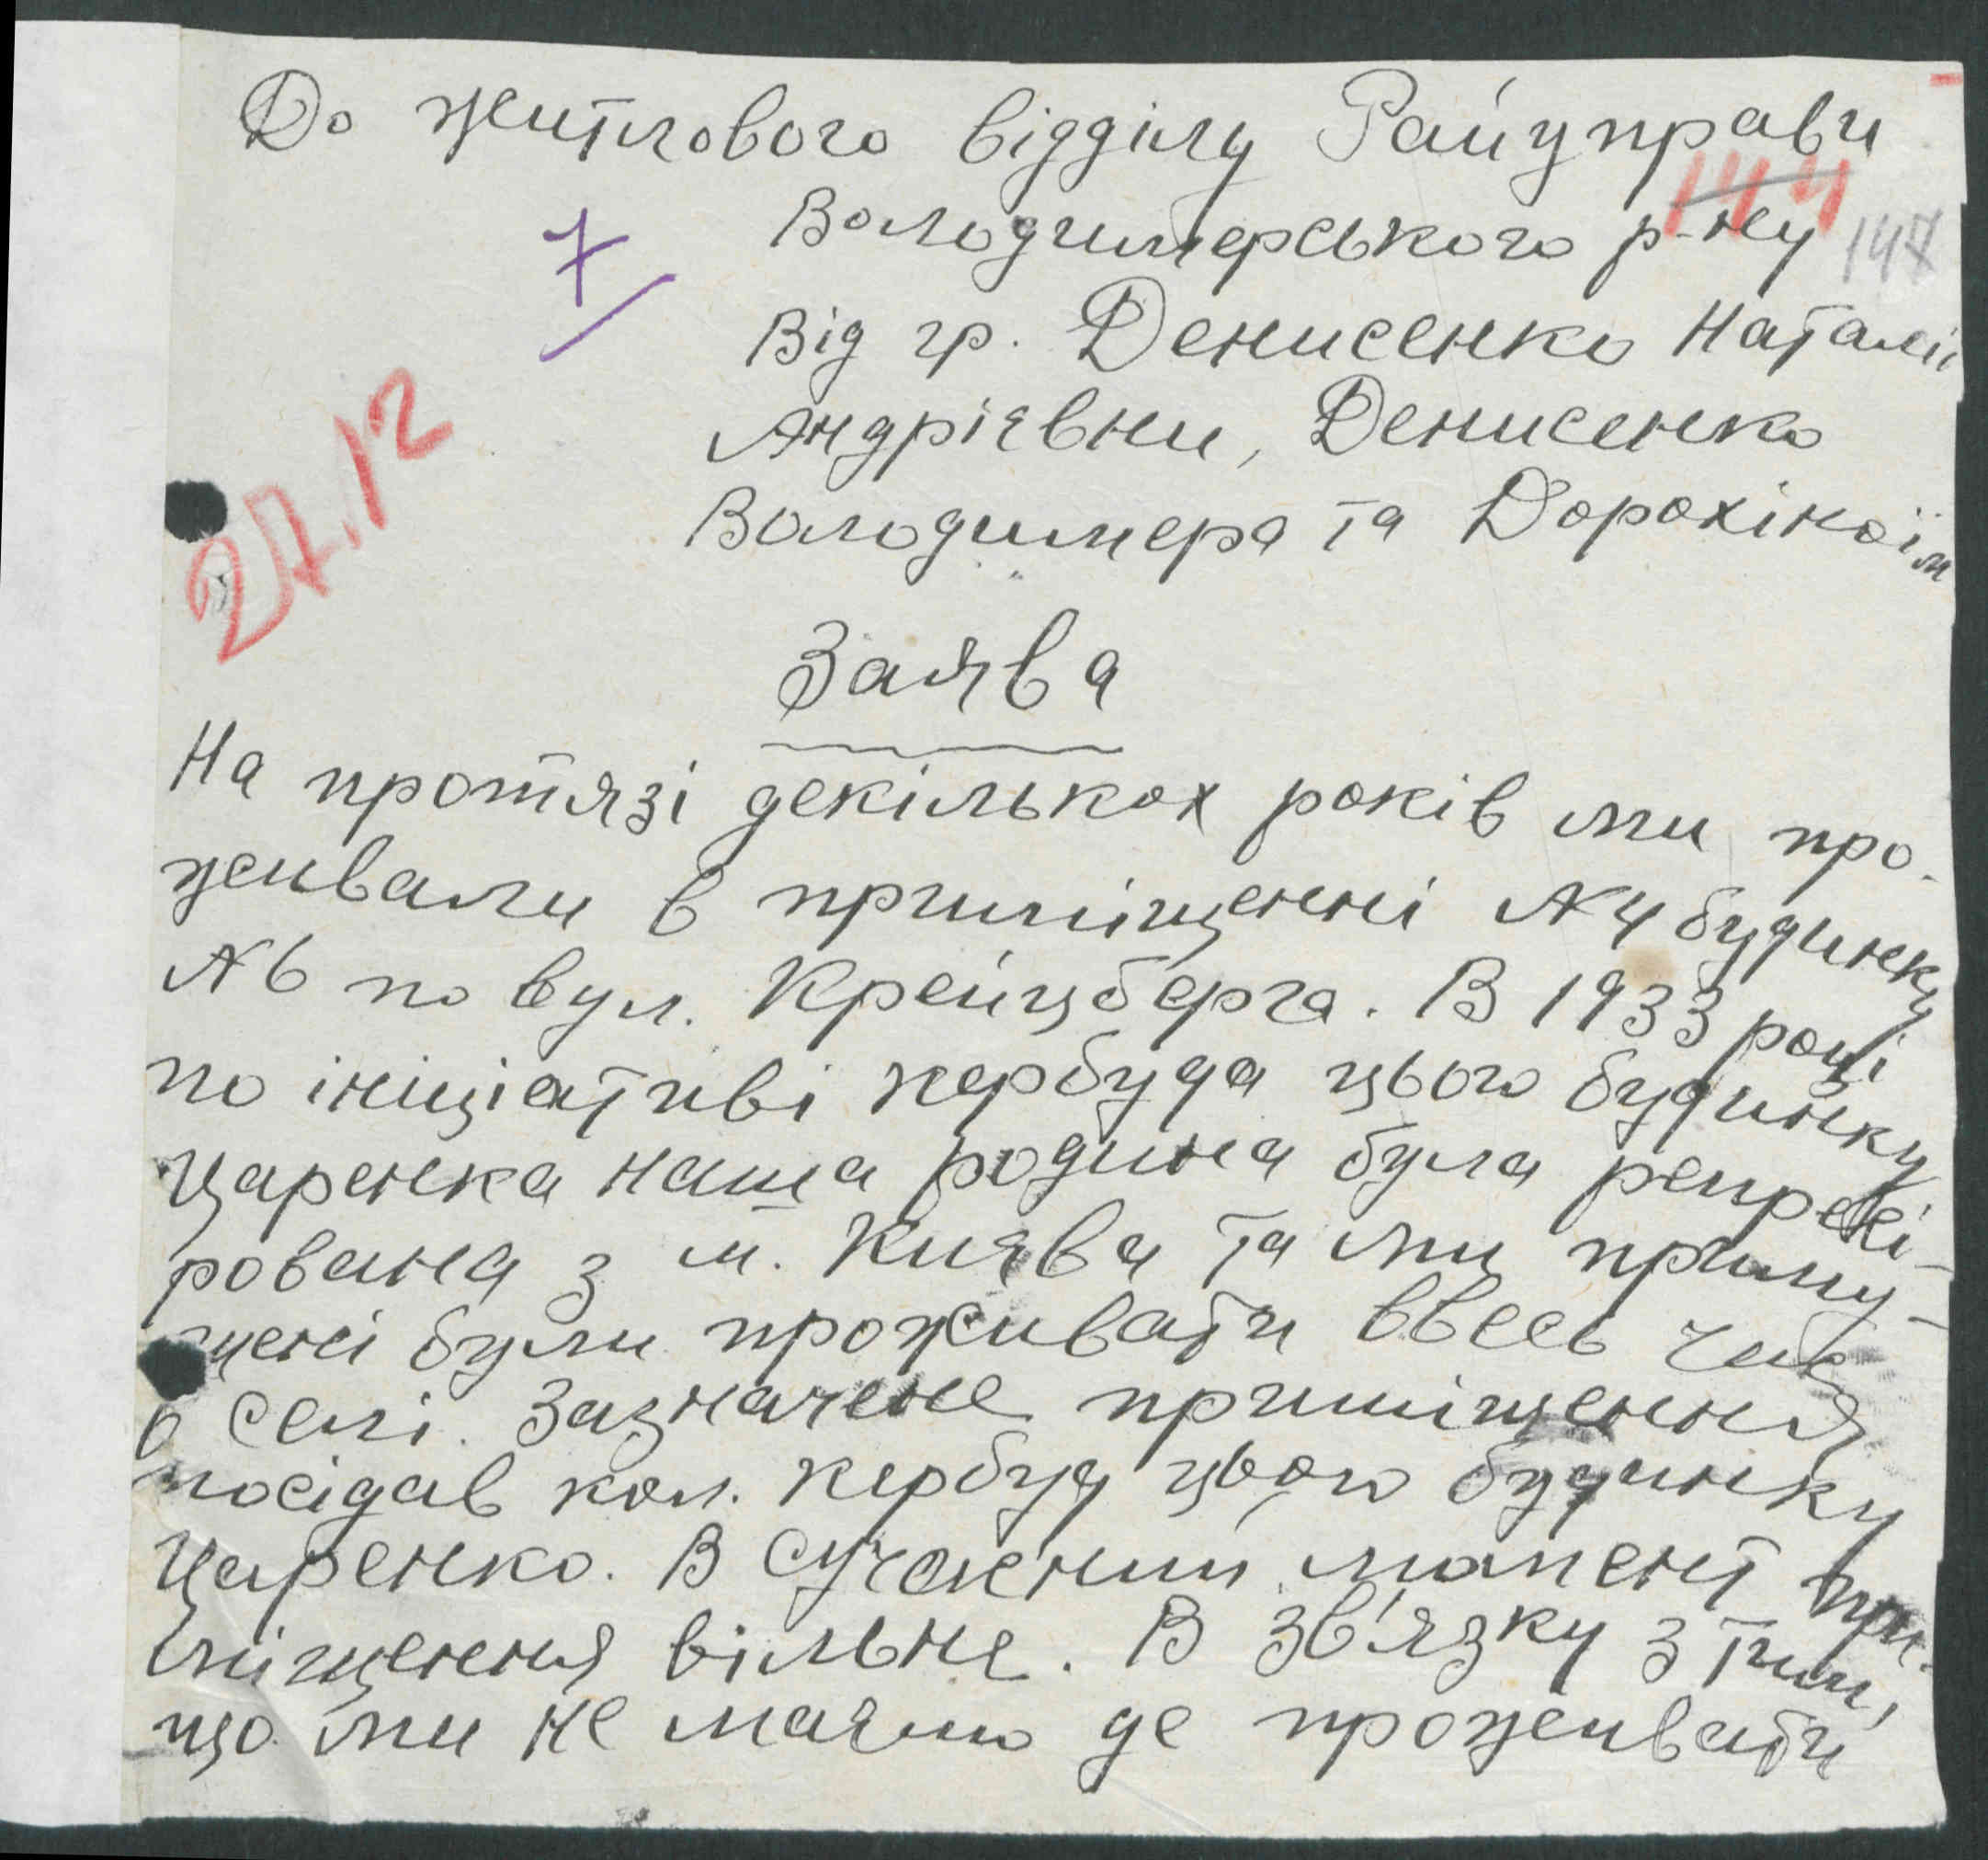 До житлового відділу Райуправи
144
Володимерського р-ну 147
7
Від гр. Денисенко Наталії
Андрієвни, Денисенко
27.12
Володимера та Дорохіної м
Заява
На протязі декількох років ми про-
живали в приміщенні №4 будинку
№6 по вул. Крейцберга. В 1933 році
по ініціативі кербуда цього будинку
Царенка наша родина була репресі-
рована з м. Києва та ми приму-
щені були проживати ввесь час
в селі. Зазначене приміщення
посідав кол. кербуд цього будинку
Царенко. В сучасний момент при-
міщення вільне. В зв'язку з тим,
що ми не маємо де проживати